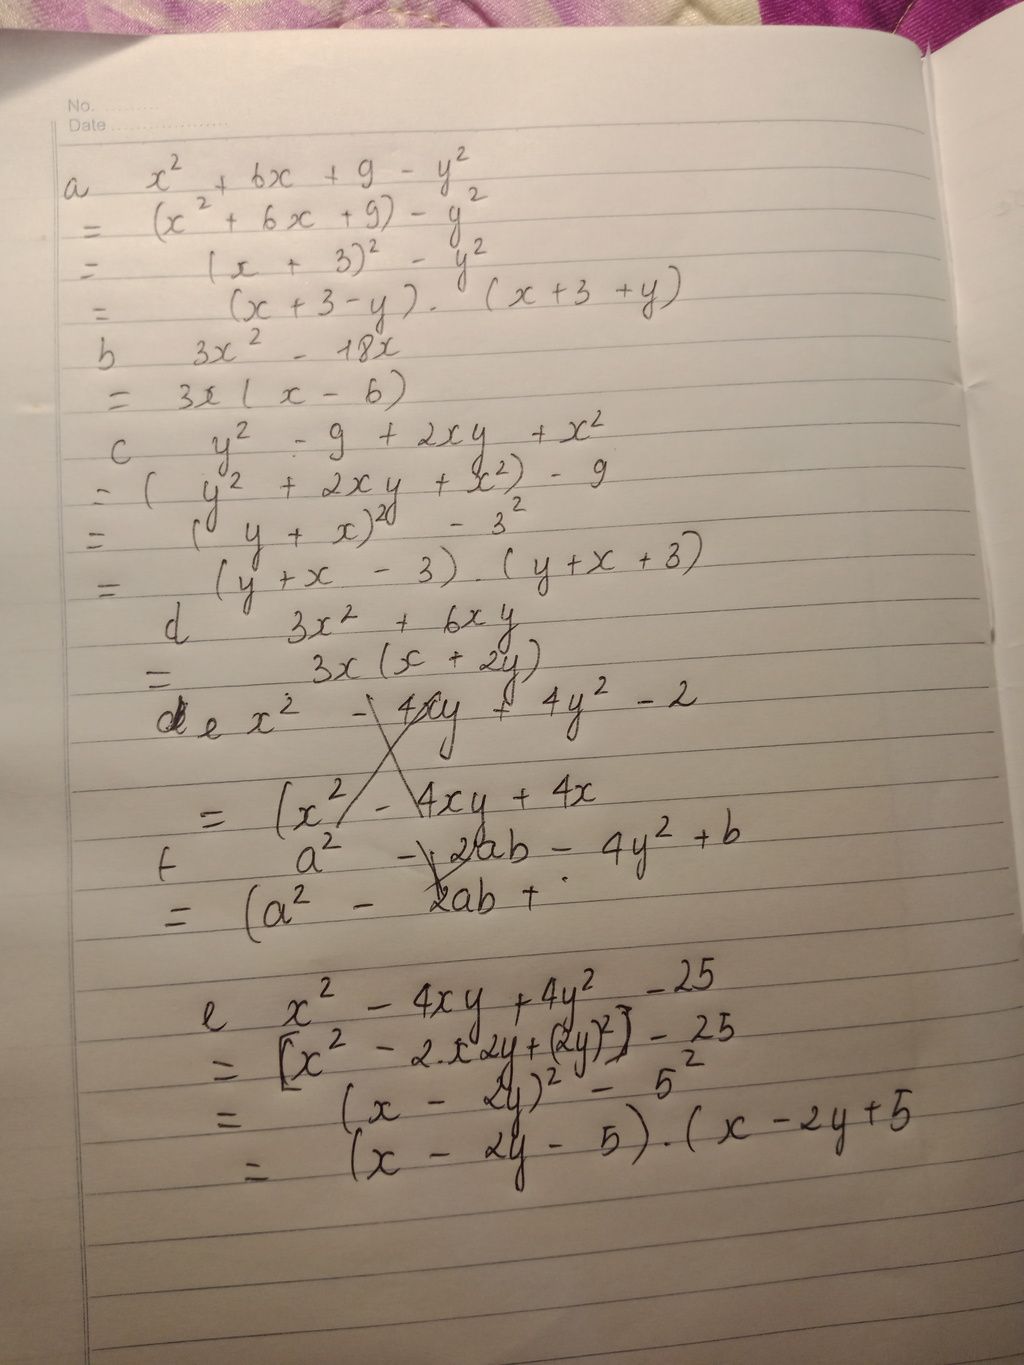 No. ..........
Date ....................
a x² + 6x + 9 - y²
= (x² + 6x + 9) - y²
= (x + 3)² - y²
= (x + 3 - y). (x + 3 + y)
b 3x² - 18x
= 3x ( x - 6)
c y² - 9 + 2xy + x²
= ( y² + 2xy + x²) - 9
= ( y + x)² - 3²
= (y + x - 3) . (y + x + 3)
d 3x² + 6xy
= 3x (x + 2y)
e x² - 4xy + 4y² - 2
= (x² - 4xy + 4x
f a² - 2ab - 4y² + b
= (a² - 2ab +
e x² - 4xy + 4y² - 25
= [x² - 2.x 2y + (2y)²] - 25
= (x - 2y)² - 5²
= (x - 2y - 5) . (x - 2y + 5